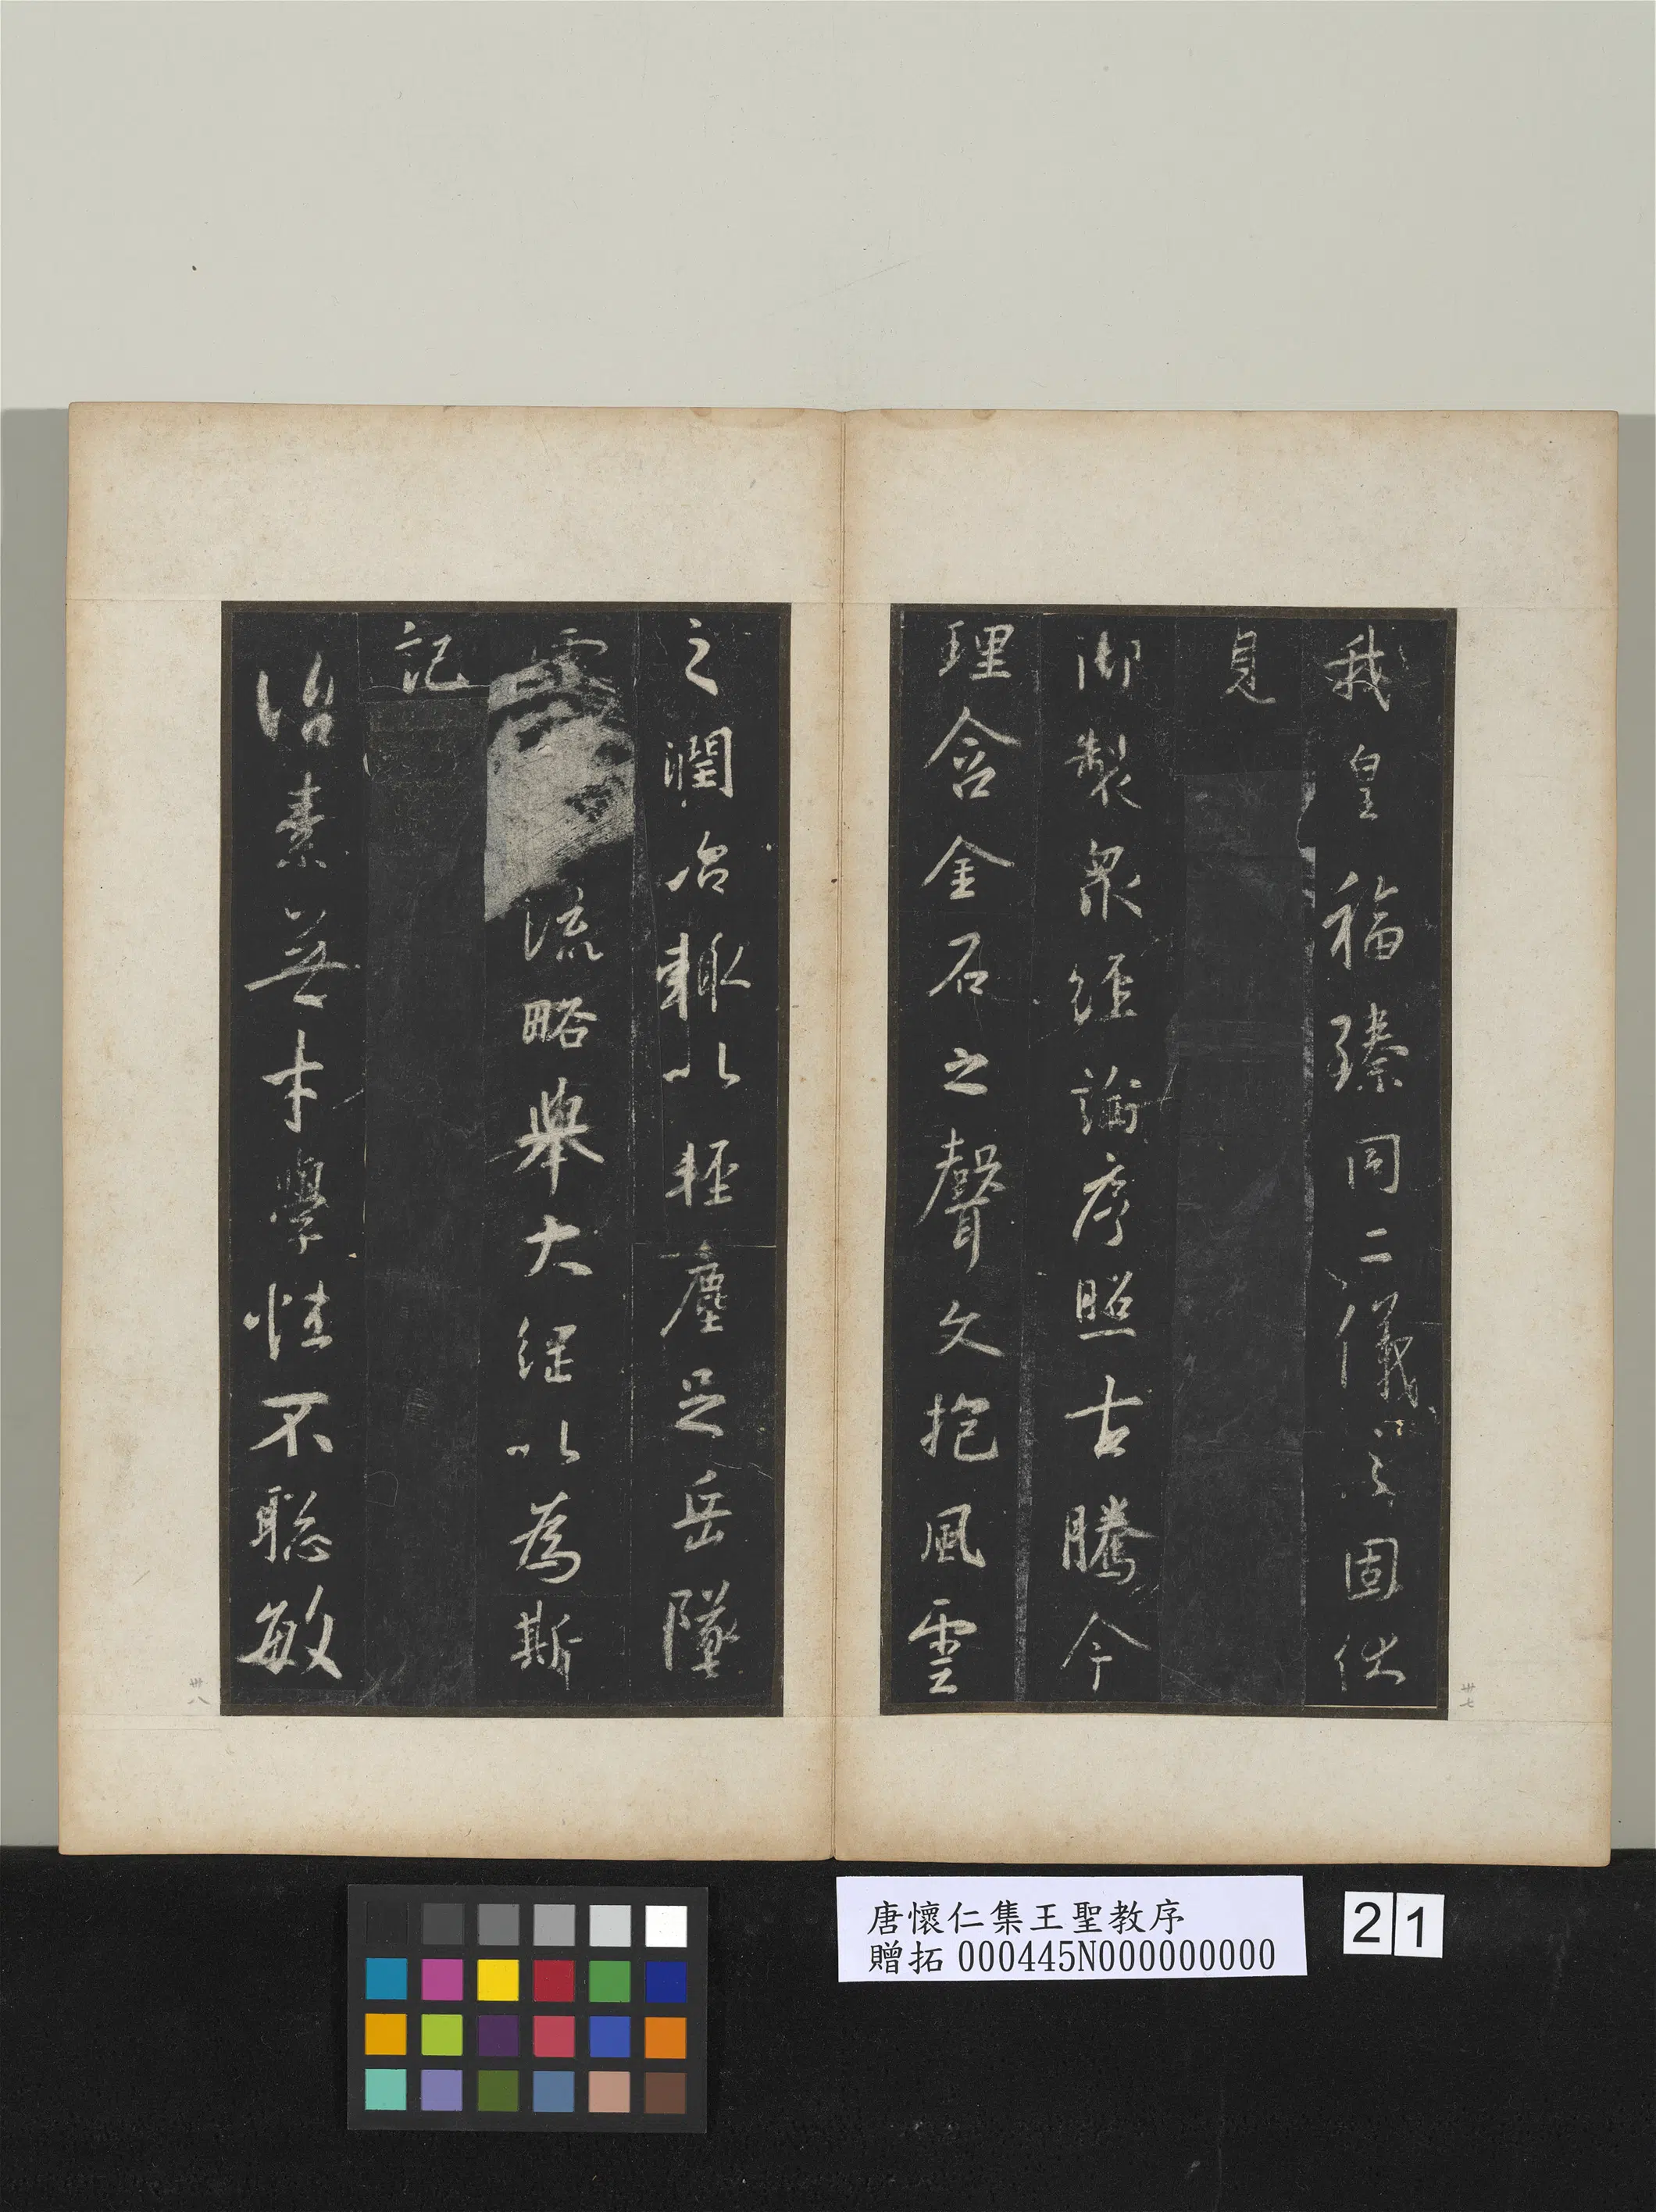 我皇福臻同二儀之固伏
見
御製眾經論序照古騰今
理含金石之聲文抱風雲
卅七
之潤治輒以輕塵足岳墜
露流略舉大綱以為斯
記
治素無才學性不聰敏
卅八
唐懷仁集王聖教序
贈拓 000445N000000000
21